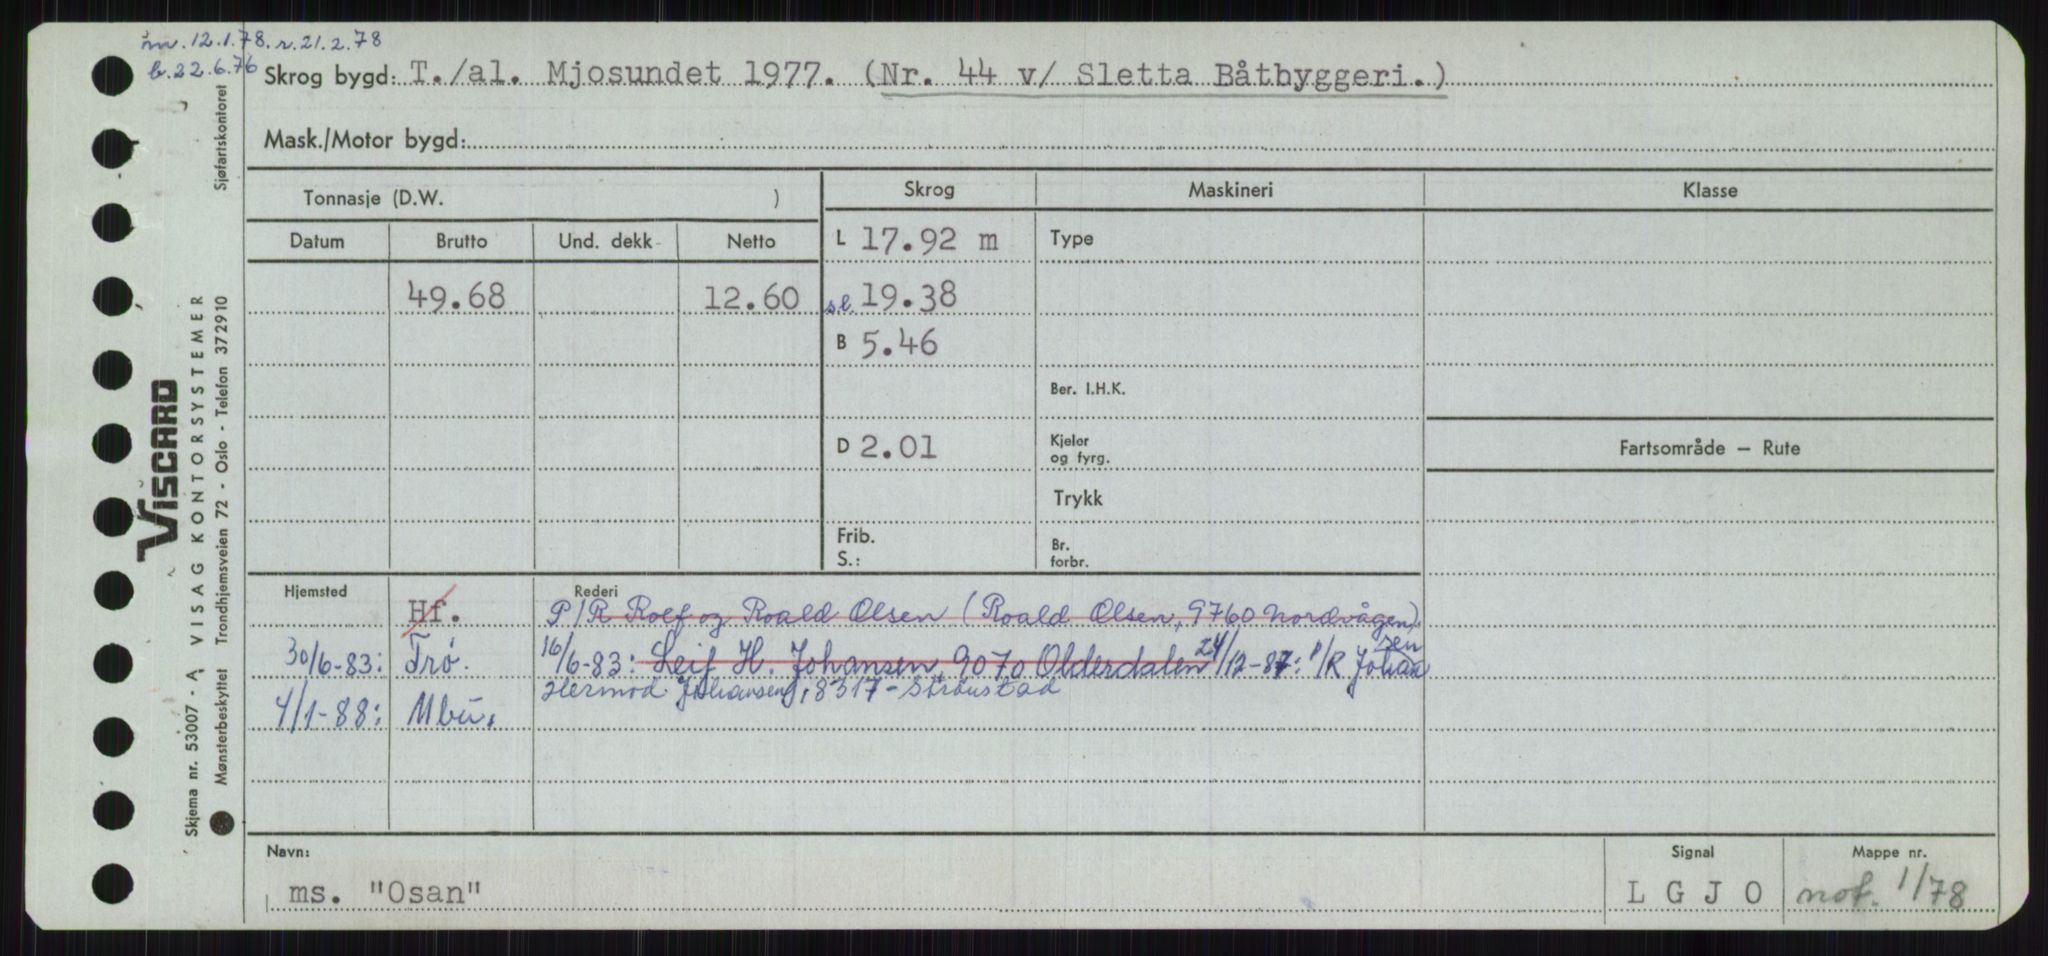 m. 12.1.78. r. 21.2.78
b. 22.6.76
Skrog bygd: T./al. Mjosundet 1977. (Nr. 44 v/ Sletta Båtbyggeri.)
Mask./Motor bygd:
Tonnasje (D.W. )
Skrog
Maskineri
Klasse
Datum Brutto Und. dekk Netto
L 17.92 m
Type
49.68 12.60
s.l. 19.38
B 5.46
Ber. I.H.K.
D 2.01
Kjeler
og fyrg.
Fartsområde — Rute
Trykk
Frib.
S.:
Br.
forbr.
Hjemsted
Rederi
Hf. P/R Rolf og Roald Olsen (Roald Olsen, 9760 Nordvågen).
30/6-83: Trø. 16/6-83: Leif H. Johansen, 9070 Olderdalen 24/12-87: P/R Johansen
Hermod Johansen, 8317 - Strønstad
4/1-88: Mbu.
Navn:
ms. "Osan"
Signal
L G J O
Mappe nr.
not. 1/78
Sjøfartskontoret
VISCARD
A VISAG KONTORSYSTEMER
Skjema nr. 53007 -
Mønsterbeskyttet Trondhjemsveien 72 - Oslo - Telefon 372910